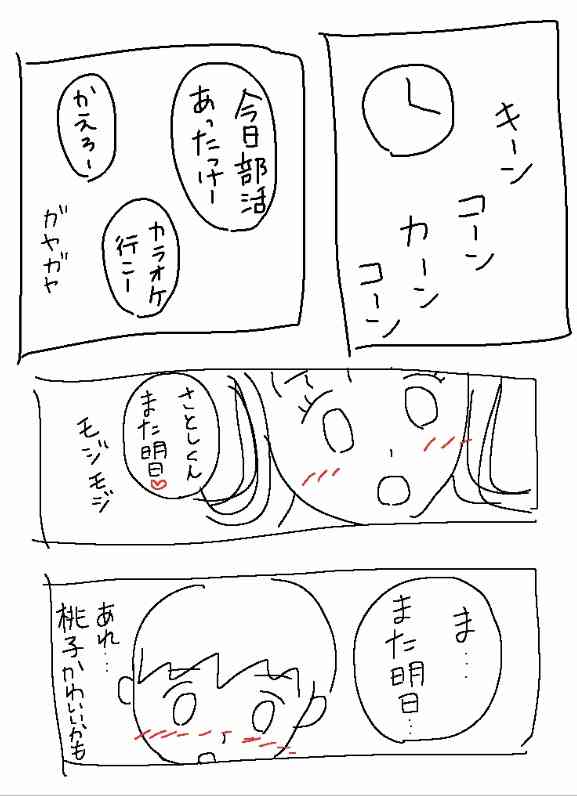 キーン
コーン
カーン
コーン
今日部活
あったっけー
かえろー
カラオケ
行こー
ガヤガヤ
さとしくん
また明日♡
モジモジ
ま……
また明日…
あれ……
桃子かわいいかも